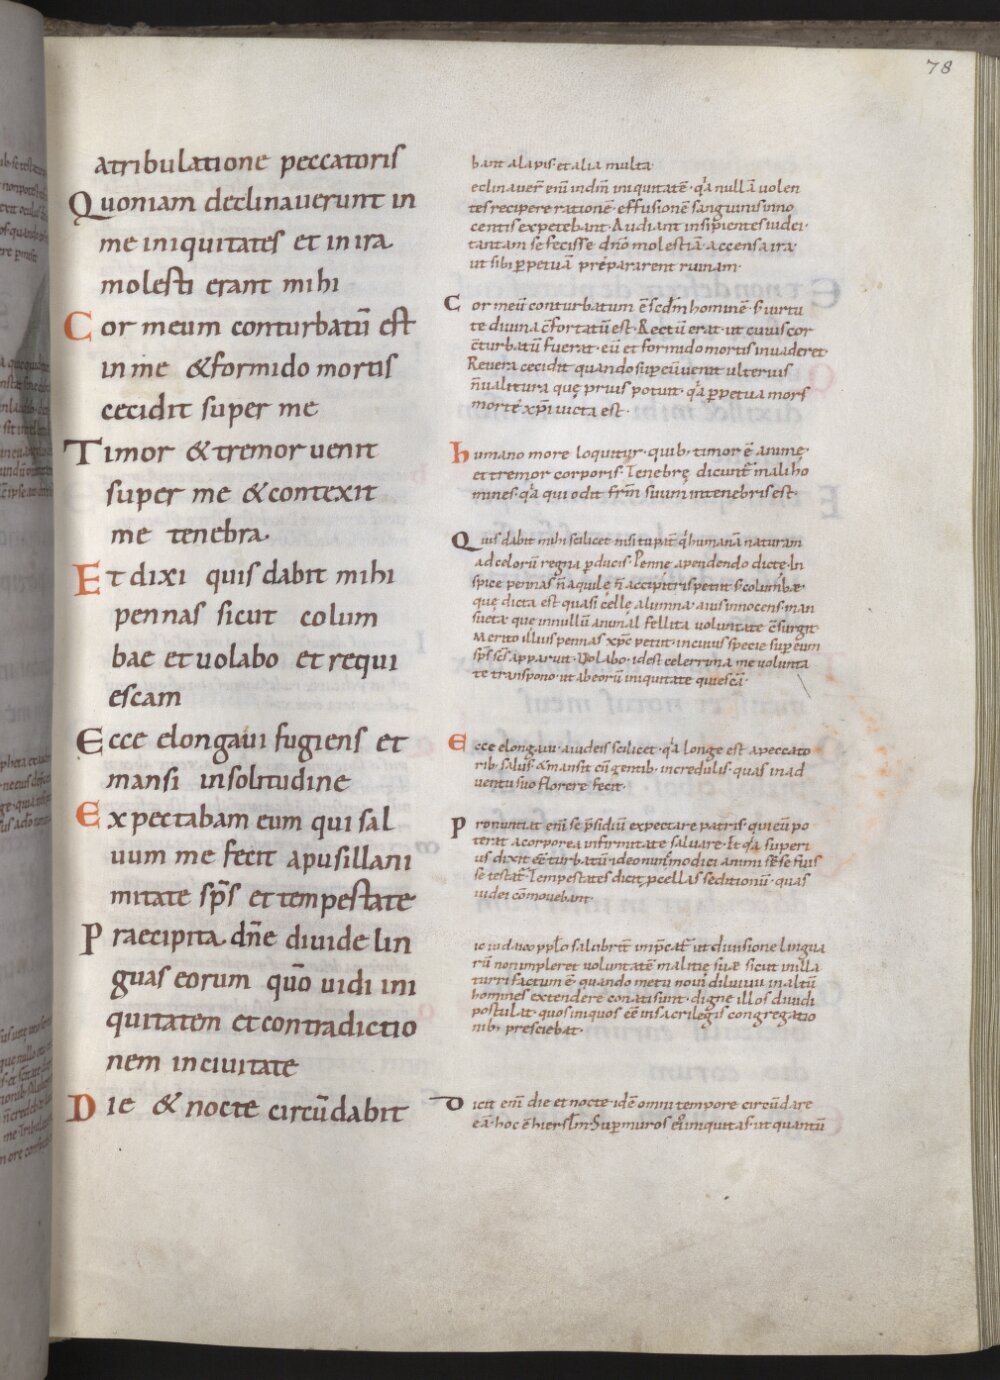 78
atribulatione peccatoris
Quoniam declinauerunt in
me iniquitates et in ira
molesti erant mihi
Cor meum conturbatū est
in me &formido mortis
cecidit super me
Timor &tremor uenit
super me &contexit
me tenebra.
Et dixi quis dabit mihi
pennas sicut colum
bae et uolabo et requi
escam
Ecce elongaui fugiens et
mansi insolitudine
Expectabam eum qui sal
uum me fecit apusillani
mitate sp̄s et tempestate
Praecipita. dn̄e diuide lin
guas eorum quō uidi ini
quitatem et contradictio
nem in ciuitate
Die & nocte circūdabit
bant alapis et alia multa
eclinauer̄ eni͞ indm̄ iniquitatē· qa nullā uolen
tes recipere rationē· effusionē sanguinis inno
centis expetebant· Audiant insipientes iudei·
tantam se fecisse dn̄o molestiā· accensa ira·
ut sibi ꝑpetuā prępararent ruinam·
Cor meū conturbatum ē scdm̄ hominē· s; uirtu
te diuina c̄fortatū est· Rectū erat· ut cuius cor
c̄turbatū fuerat· eū et formido mortis inuaderet·
Reuera cecidit quando supeū uenit ulterius
n̄ualitura quę prius potuit· qa ꝑpetua mors
morte xp̄i uicta est·
humano more loquitur· quib· timor ē animę·
et tremor corporis· Tenebrę dicunt̄ mali ho
mines· qa qui odit fr̄m suum intenebris est·
Quis dabit mihi scilicet nisi tu pat̄ q humanā naturam
ad celorū regna ꝑducis· Penne apendendo dicte· In
spice pennas n̄ aquilę n̄ accipitris petiit s; columbæ·
que dicta est quasi cellę alumna· auis innocens man
sueta· que innullū animal fellita uoluntate c̄surgit·
Merito illius pennas xp̄c petit· incuius specie sup eum
sp̄s sc̄s apparuit· Uolabo· idest celerrima me uolunta
te transpono· ut abeorū iniquitate quiescā·
Ecce elongaui· auideis scilicet· qa longe est apeccato
rib· salus· &mansit cū gentib· incredulis· quas in ad
uentu suo florere fecit·
Pronuntiat eni͞ se p̄sidiū expectare patris· qui eū po
terat acorporea infirmitate saluare· Et qa superi
us dixit c̄turbatū· ideo nunc modici animi se ē se fuis
se testat̄· Tempestates dicit ꝓcellas seditionū· quas
iudei cōmouebant·
ppl̄o salubrit̄ inp̄cat̄ ut diuisione lingua
rū non impleret uoluntatē malitię suæ sicut in illa
turri factum ē· quando metu noui diluuii in altū
homines extendere conati sunt· digne illos diuidi
postulat· quos iniquos eē insacrilegis congregatio
nib; presciebat·
Dicit eni͞ die et nocte· idē omni tempore circūdare
eā· hoc ē hierslm̄· Sup muros ei iniquitas· ut quantū